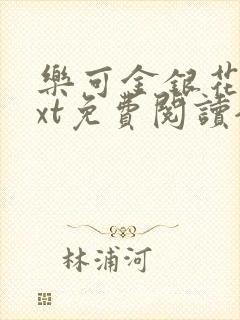 樂可金銀花
xt免費閱讀
林浦河